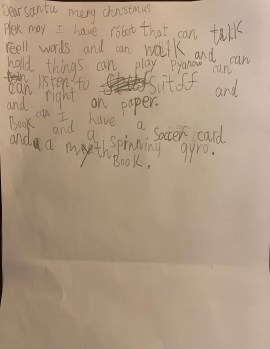 Dear santa merry christmas
Plek may I have robot that can talk
reell words and can walk and can
hold things can play pyanow can
can listen to Stuff and
and right on paper.
can I have a
Book and a Soccer card
and a spinning gyro.
a myth Book.